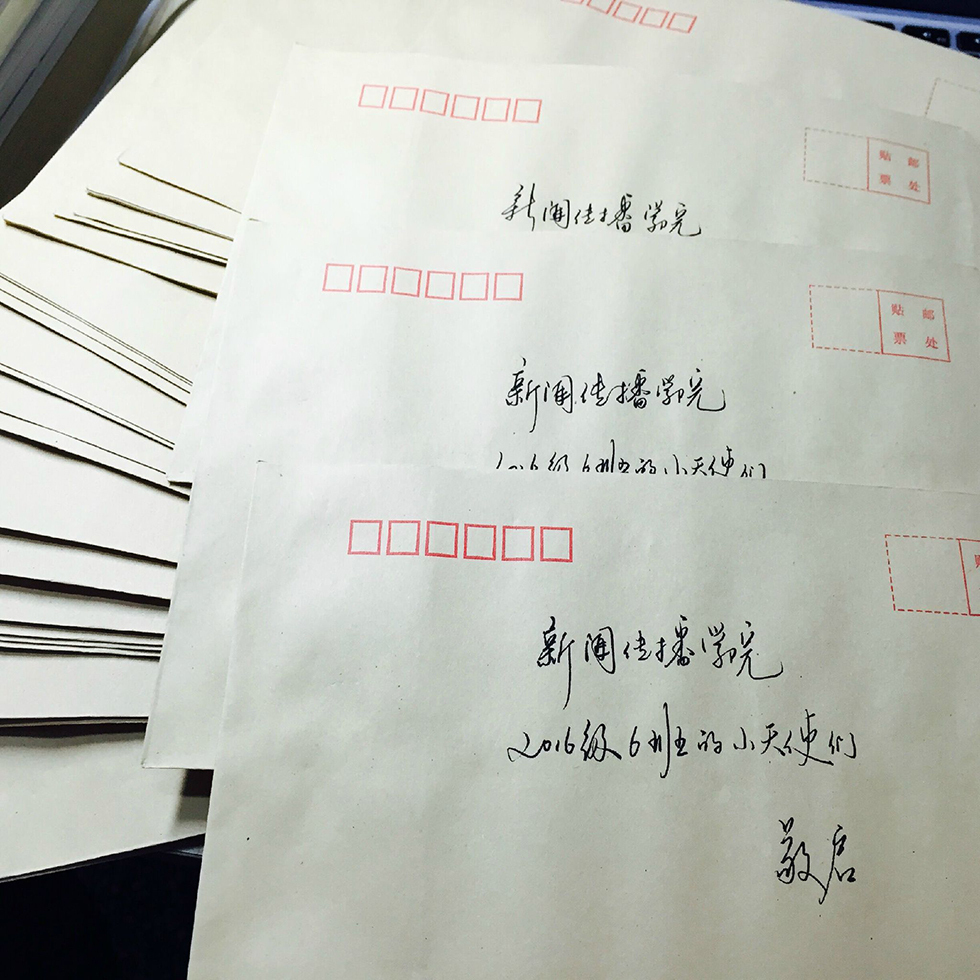 贴 邮
票 处
新闻传播学院
贴 邮
票 处
新闻传播学院
2016级6班的小天使们
贴
新闻传播学院
2016级6班的小天使们
敬启